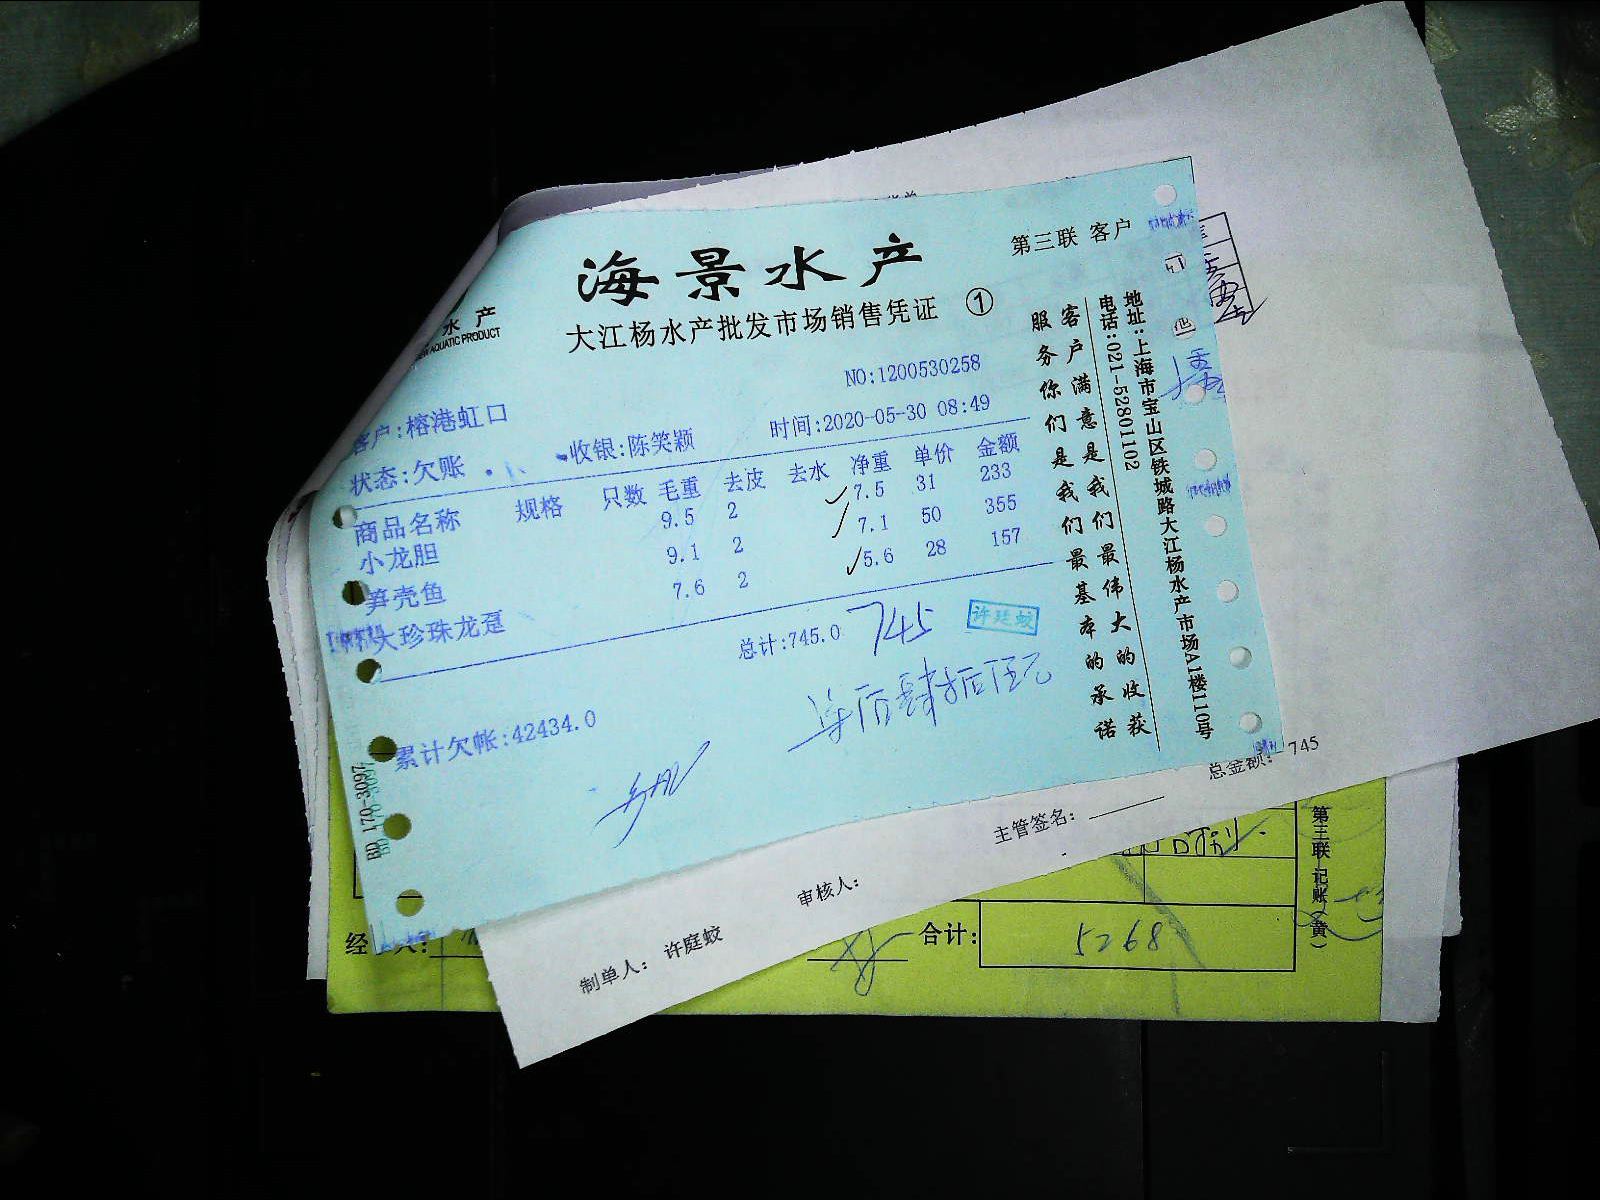 海景水产
第三联 客户
水产
AQUATIC PRODUCT
大江杨水产批发市场销售凭证 ①
NO:1200530258
客户:榕港虹口
时间:2020-05-30 08:49
状态:欠账
收银:陈笑颖
商品名称 规格 只数 毛重 去皮 去水 净重 单价 金额
小龙胆 9.5 2 7.5 31 233
笋壳鱼 9.1 2 7.1 50 355
大珍珠龙趸 7.6 2 5.6 28 157
总计:745.0
745
许廷蛟
累计欠帐:42434.0
客户满意是我们最伟大的收获
服务你们是我们最基本的承诺
地址:上海市宝山区铁城路大江杨水产市场A1楼110号
电话:021-52801102
BD 170-3097
总金额: 745
主管签名:
审核人:
制单人: 许庭蛟
合计: 5268
第三联 记账(黄)